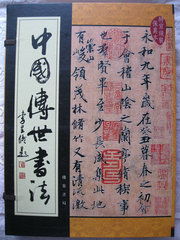 中國傳世書法
永和九年歲在癸丑暮春之初
于會稽山陰之蘭亭脩稧事
也群賢畢至少長咸集此地
有崇山峻領茂林脩竹又有清流激
線裝書局